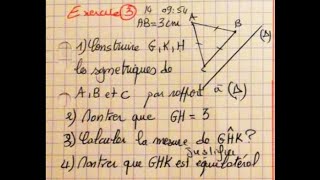 Exercice ③ 14 09:54
AB=3cm
A
B
C
(Δ)
1) Construire G, K, H
les symetriques de
A, B et C par rapport à (Δ)
2) Montrer que GH = 3
3) Calculer la mesure de GĤK ?
justifier
4) Montrer que GHK est équilatéral